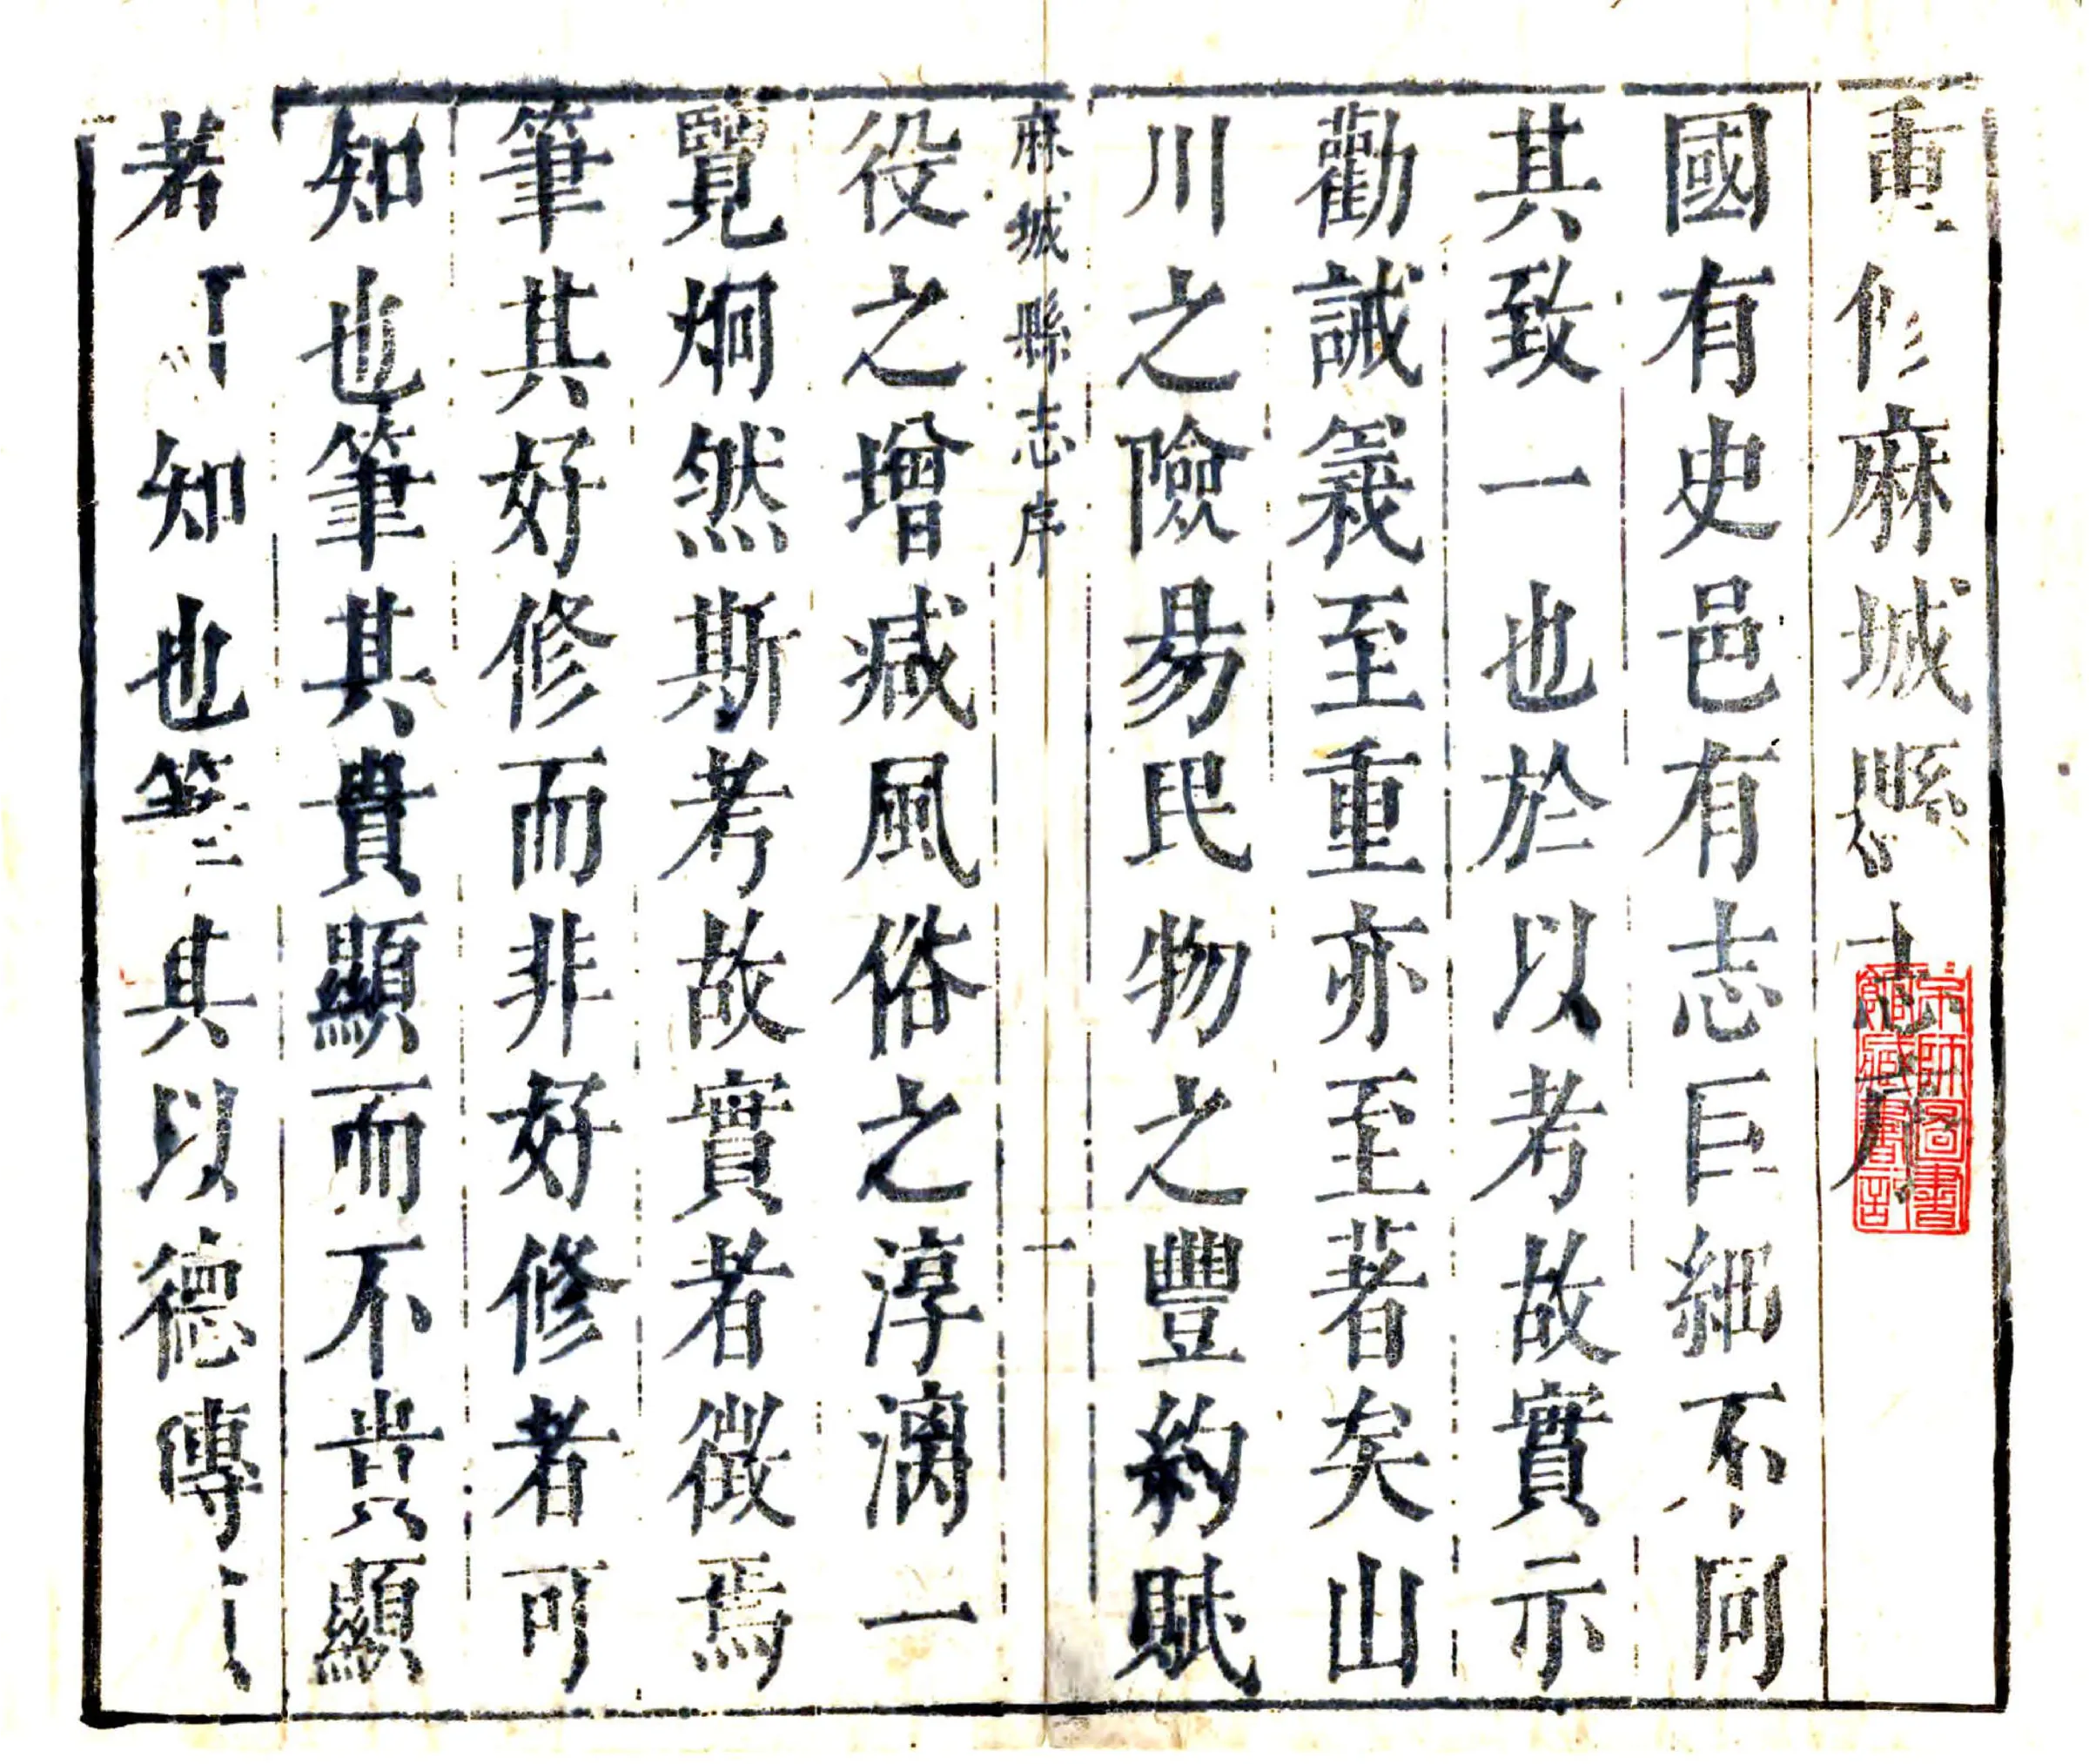 重修麻城縣志序
國有史邑有志巨細不同
其致一也於以考故實示
勸誡義至重亦至著矣山
川之險易民物之豐約賦
麻城縣志序 一
役之增减風俗之淳漓一
覽炯然斯考故實者徵焉
筆其好修而非好修者可
知也筆其貴顯而不貴顯
者可知也筆其以德傳
京師圖書館藏書記